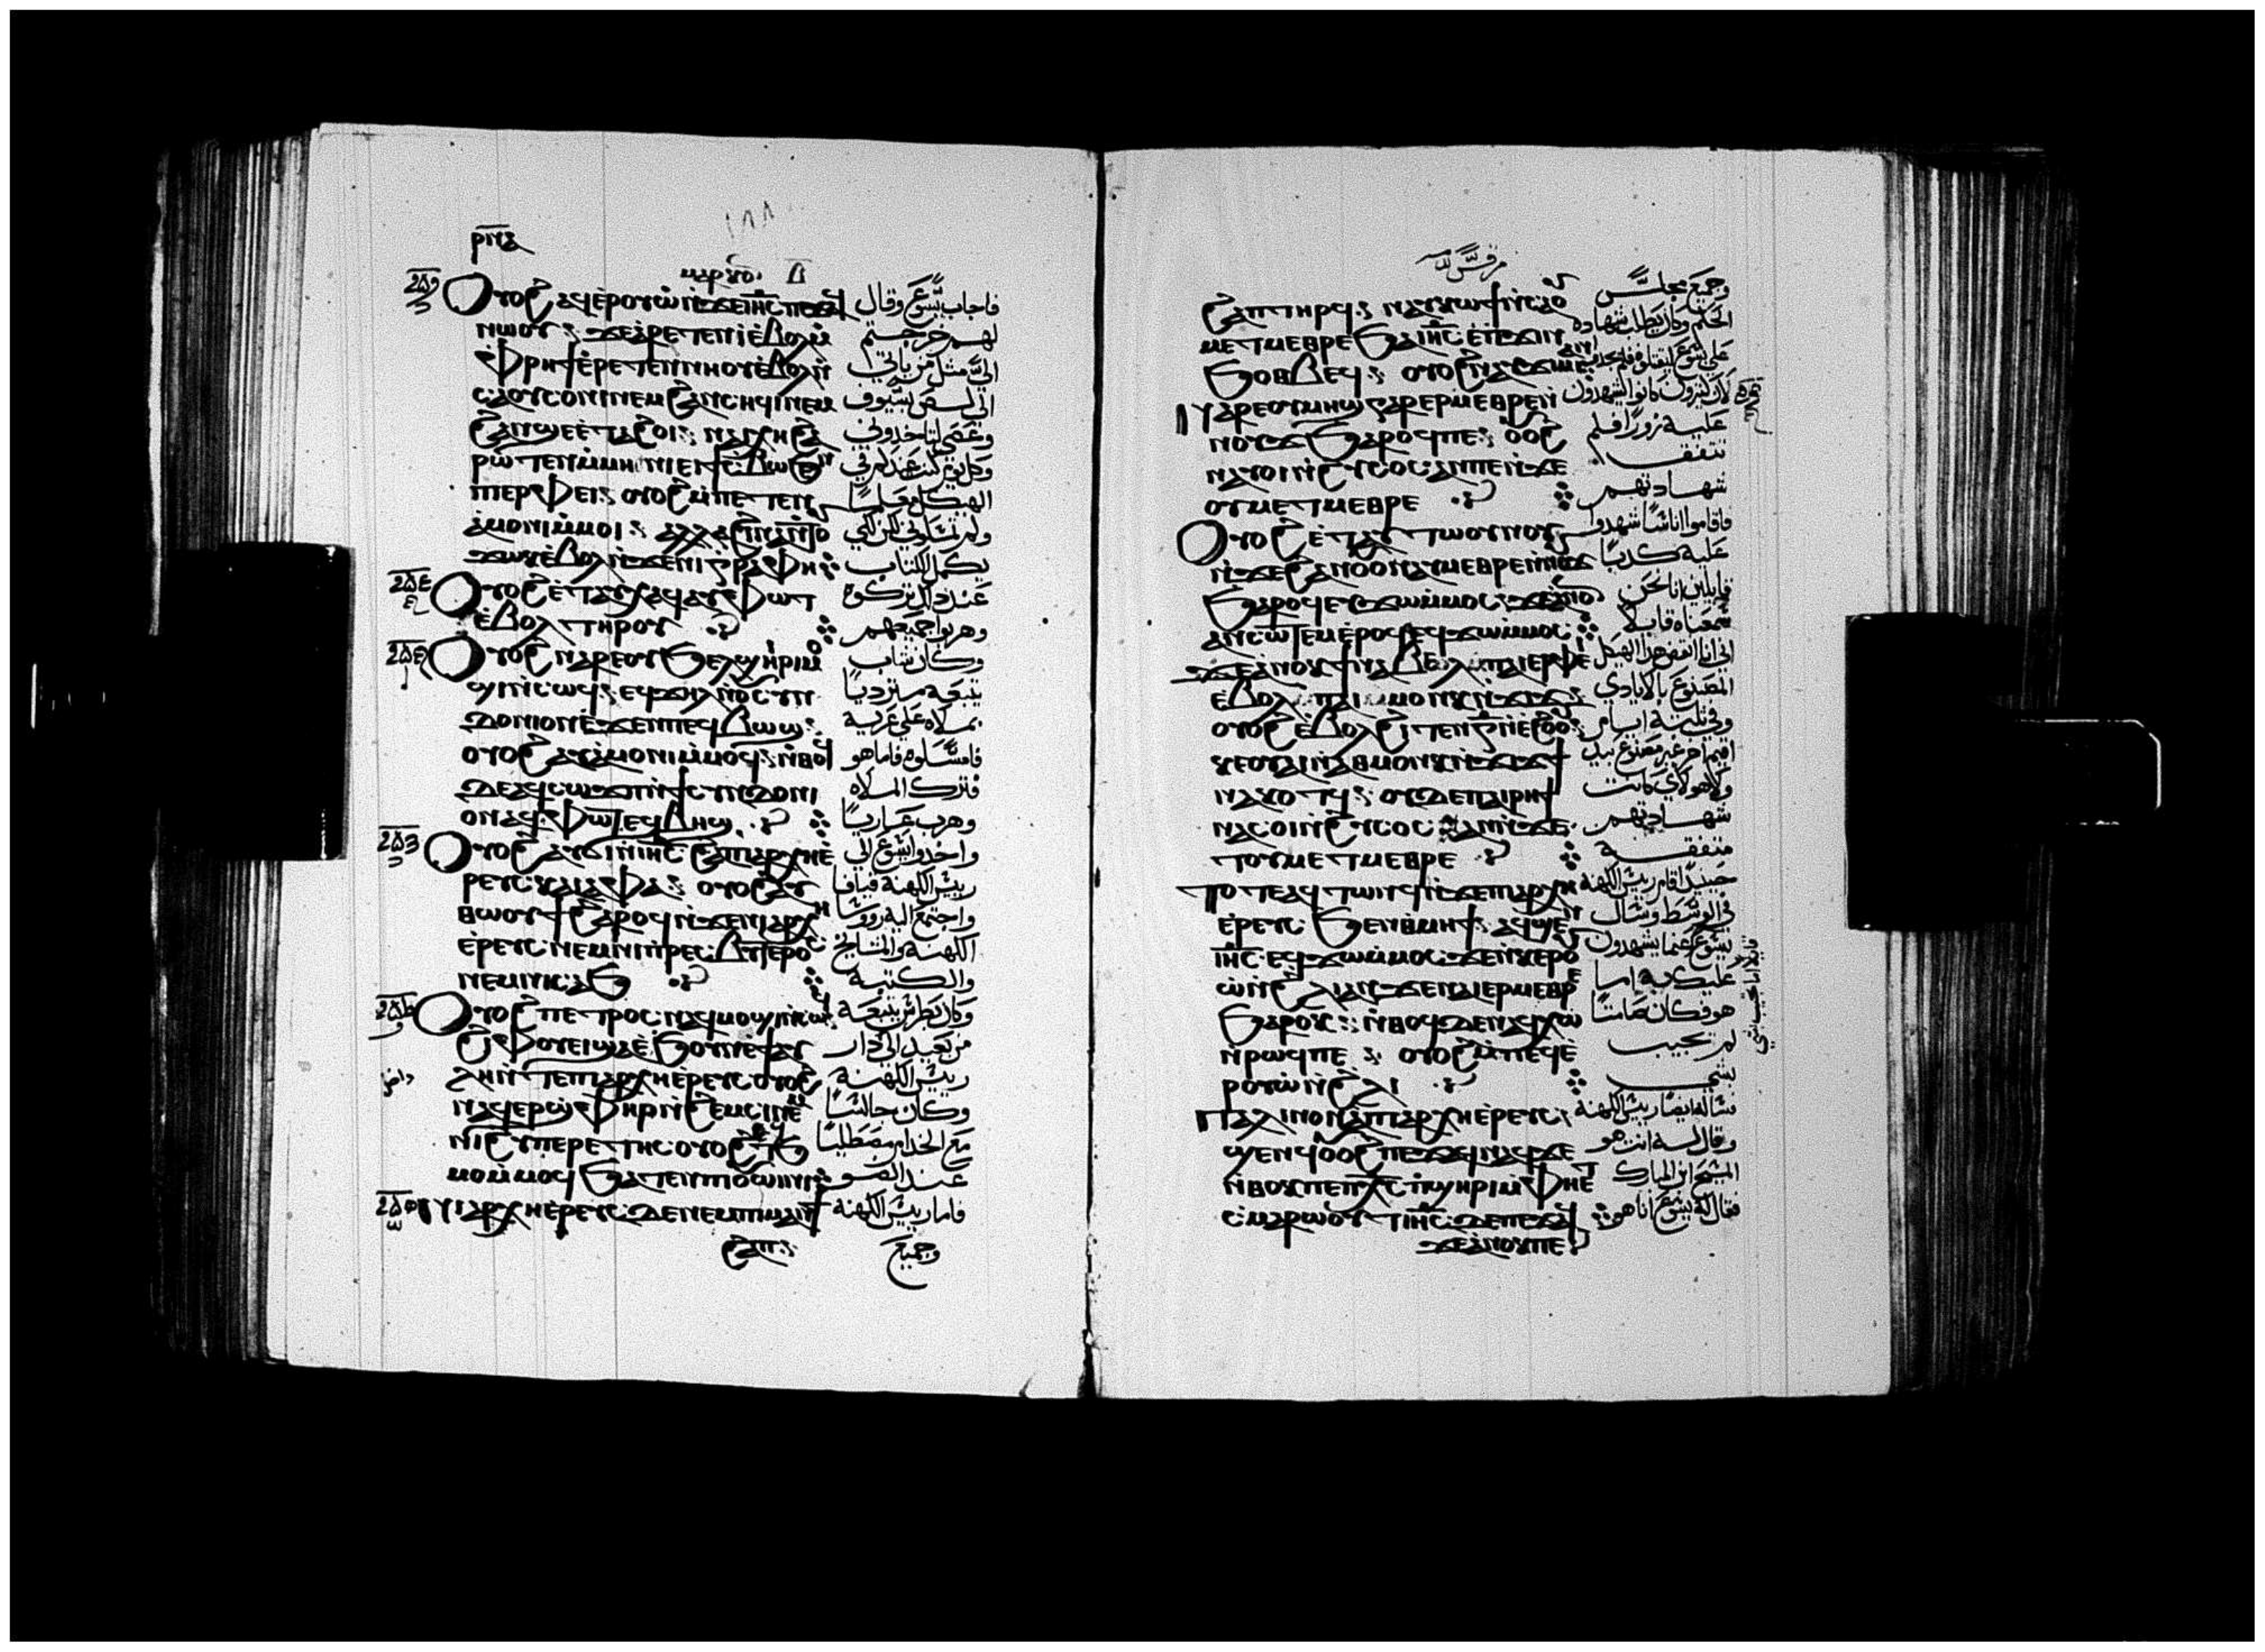 ⲣⲛⲋ
١٨٨
ⲙⲁⲣⲕⲟⲥ ⲇ
ⲟⲩⲟϩ ⲁϥⲉⲣⲟⲩⲱ ⲛ̀ϫⲉ ⲓⲏ̅ⲥ̅ ⲡⲉϫⲁϥ
ⲛⲱⲟⲩ : ϫⲉ ⲁⲣⲉⲧⲉⲛⲓ̀ ⲉ̀ⲃⲟⲗ ⲙ̀
ⲫⲣⲏϯ ⲉⲣⲉⲧⲉⲛⲛⲏⲟⲩ ⲉ̀ⲃⲟⲗ ⲛ̀
ⲥⲁ ⲟⲩⲥⲟⲛⲓ ⲛⲉⲙ ϩⲁⲛⲥⲏϥⲓ ⲛⲉⲙ
ϩⲁⲛϣⲉ ⲉ̀ⲧⲁϩⲟⲓ : ⲛⲁⲓⲭⲏ ϩⲁ
ⲣⲱⲧⲉⲛ ⲙ̀ⲙⲏⲛⲓ ⲉⲓϯⲥⲃⲱ ϧⲉⲛ
ⲡⲓⲉⲣⲫⲉⲓ : ⲟⲩⲟϩ ⲙ̀ⲡⲉⲧⲉⲛ
ⲁ̀ⲙⲟⲛⲓ ⲙ̀ⲙⲟⲓ : ⲁⲗⲗⲁ ϩⲓⲛⲁ ⲛ̀ⲧⲟⲩ
ϫⲱⲕ ⲉ̀ⲃⲟⲗ ⲛ̀ϫⲉ ⲛⲓⲅⲣⲁⲫⲏ
ⲟⲩⲟϩ ⲉ̀ⲧⲁⲩⲭⲁϥ ⲁⲩⲫⲱⲧ
ⲉ̀ⲃⲟⲗ ⲧⲏⲣⲟⲩ
ⲟⲩⲟϩ ⲛⲁⲣⲉ ⲟⲩϧⲉⲗϣⲏⲣⲓ ⲙ
ⲟϣⲓ ⲛ̀ⲥⲱϥ : ⲉϥϫⲏⲗ ⲛ̀ⲟⲩⲥⲩⲛ
ⲇⲟⲛⲓⲟⲛ ⲉ̀ϫⲉⲛ ⲡⲉϥⲃⲱϣ :
ⲟⲩⲟϩ ⲁⲩⲁ̀ⲙⲟⲛⲓ ⲙ̀ⲙⲟϥ : ⲛ̀ⲑⲟϥ
ⲇⲉ ⲁϥⲥⲱϫⲡ ⲛ̀ϯⲥⲩⲛⲇⲟⲛⲓ
ⲟⲛ ⲁϥⲫⲱⲧ ⲉϥⲃⲏϣ
ⲟⲩⲟϩ ⲁⲩϭⲓ ⲛ̀ⲓⲏ̅ⲥ̅ ϩⲁ ⲡⲁⲣⲭⲏⲉ̀
ⲣⲉⲩⲥ ⲕⲁⲓⲁⲫⲁ : ⲟⲩⲟϩ ⲁⲩ
ⲑⲱⲟⲩϯ ϩⲁⲣⲟϥ ⲛ̀ϫⲉ ⲛⲓⲁⲣⲭⲏ
ⲉ̀ⲣⲉⲩⲥ ⲛⲉⲙ ⲛⲓⲡⲣⲉⲥⲃⲩⲧⲉⲣⲟⲥ
ⲛⲉⲙ ⲛⲓⲥⲁϧ
ⲟⲩⲟϩ ⲡⲉⲧⲣⲟⲥ ⲛⲁϥⲙⲟϣⲓ ⲛ̀ⲥⲱϥ
ϩⲓ ⲫⲟⲩⲉⲓ ϣⲁ ⲉ̀ϧⲟⲩⲛ ⲉ̀ϯⲁⲩ
ⲗⲏ ⲛ̀ⲧⲉ ⲡⲁⲣⲭⲏⲉ̀ⲣⲉⲩⲥ ⲟⲩⲟϩ
ⲛⲁϥⲉⲣϣ̀ⲫⲏⲣ ⲛ̀ϩⲉⲙⲥⲓ ⲛⲉⲙ
ⲛⲓϩⲩⲡⲉⲣⲉⲧⲏⲥ ⲟⲩⲟϩ ⲉϥϧ
ⲙⲟⲙ ⲙ̀ⲙⲟϥ ϧⲁⲧⲉⲛ ⲡⲓⲟⲩⲱⲓⲛⲓ
ⲛⲓⲁⲣⲭⲏⲉ̀ⲣⲉⲩⲥ ⲇⲉ ⲛⲉⲙ ⲡⲓⲙⲁⲛϯ
ϩⲁⲡ :
فاجاب يسوع وقال
لهم خرجتم
اليّ مثل من ياتي
الي لص بسيوف
وعصي لتاخذوني
وكل يوم كنت عندكم في
الهيكل معلماً
ولم تمسكوني لكن لكي
يكمل الكتاب
عند ذلك تركوه
وهربوا جميعهم
وكان شاب
يتبعه متردياً
بملاه علي عريه
فامسكوه فاما هو
فترك الملاه
وهرب عرياناً
واخذوا يسوع الي
رييس الكهنة قيافا
واجتمع اليه روسا
الكهنة والمشايخ
والكتبه
وكان بطرس يتبعه
من بعيد الي دار
رييس الكهنة
وكان جالساً
مع الخدام مصطلياً
عند الضو
فاما رييس الكهنة
وجميع
مرقس
ϩⲁⲡ ⲧⲏⲣϥ : ⲛⲁⲩⲕⲱϯ ⲛ̀ⲥⲁ ⲟⲩ
ⲙⲉⲧⲙⲉⲑⲣⲉ ϧⲁ ⲓⲏ̅ⲥ̅ ⲉ̀ⲡϫⲓⲛ
ϧⲟⲑⲃⲉϥ : ⲟⲩⲟϩ ⲛⲁⲩϫⲓⲙⲓ ⲁⲛ
ⲛⲁⲣⲉ ⲟⲩⲙⲏϣ ⲅⲁⲣ ⲉⲣⲙⲉⲑⲣⲉ ⲛ̀
ⲛⲟⲩϫ ϧⲁⲣⲟϥ ⲡⲉ : ⲟⲩⲟϩ
ⲛⲁⲩⲟⲓ ⲛ̀ϩⲩⲥⲟⲥ ⲁⲛ ⲡⲉ ⲛ̀ϫⲉ
ⲟⲩⲙⲉⲧⲙⲉⲑⲣⲉ
ⲟⲩⲟϩ ⲉ̀ⲧⲁⲩⲧⲱⲟⲩⲛⲟⲩ
ⲛ̀ϫⲉ ϩⲁⲛⲟⲩⲟⲛ ⲁⲩⲉⲣⲙⲉⲑⲣⲉ ⲛ̀ⲛⲟⲩϫ
ϧⲁⲣⲟϥ ⲉⲩϫⲱ ⲙ̀ⲙⲟⲥ : ϫⲉ ⲁⲛⲟⲛ
ⲁⲛⲥⲱⲧⲉⲙ ⲉ̀ⲣⲟϥ ⲉϥϫⲱ ⲙ̀ⲙⲟⲥ
ϫⲉ ⲁⲛⲟⲕ ϯⲛⲁⲃⲉⲗ ⲡⲁⲓⲉⲣⲫⲉⲓ
ⲉ̀ⲃⲟⲗ ⲡⲁⲓⲙⲟⲩⲛⲕ ⲛ̀ϫⲓϫ :
ⲟⲩⲟϩ ⲉ̀ⲃⲟⲗ ϩⲓⲧⲉⲛ ⲅ̅ ⲛ̀ⲉ̀ϩⲟⲟⲩ
ⲕⲉⲟⲩⲁⲓ ⲛ̀ⲁⲑⲙⲟⲩⲛⲕ ⲛ̀ϫⲓϫ ϯ
ⲛⲁⲕⲟⲧϥ : ⲟⲩⲇⲉ ⲡⲁⲓⲣⲏϯ
ⲛⲁⲥⲟⲓ ⲛ̀ϩⲩⲥⲟⲥ ⲁⲛ ⲛ̀ϫⲉ
ⲧⲟⲩⲙⲉⲧⲙⲉⲑⲣⲉ
ⲧⲟⲧⲉ ⲁϥⲧⲱⲛϥ ⲛ̀ϫⲉ ⲡⲁⲣⲭⲏ
ⲉ̀ⲣⲉⲩⲥ ϧⲉⲛ ⲑⲙⲏϯ : ⲁϥϣⲉⲛ
ⲓⲏ̅ⲥ̅ ⲉϥϫⲱ ⲙ̀ⲙⲟⲥ ϫⲉ ⲛ̀ⲕⲉⲣⲟⲩ
ⲱ̀ ⲛ̀ϩⲗⲓ ⲁⲛ ϫⲉ ⲛⲁⲓ ⲉⲣⲙⲉⲑⲣⲉ
ϧⲁⲣⲟⲕ : ⲛ̀ⲑⲟϥ ⲇⲉ ⲛⲁϥⲭⲱ
ⲛ̀ⲣⲱϥ ⲡⲉ : ⲟⲩⲟϩ ⲙ̀ⲡⲉϥⲉ̀
ⲣⲟⲩⲱ̀ ⲛ̀ϩⲗⲓ
ⲡⲁⲗⲓⲛ ⲟⲛ ⲁ ⲡⲁⲣⲭⲏⲉ̀ⲣⲉⲩⲥ
ϣⲉⲛϥ ⲟⲩⲟϩ ⲡⲉϫⲁϥ ⲛⲁϥ ϫⲉ
ⲛ̀ⲑⲟⲕ ⲡⲉ ⲡⲭ̅ⲥ̅ ⲡ̀ϣⲏⲣⲓ ⲙ̀ⲫⲏⲉⲧ
ⲥ̀ⲙⲁⲣⲱⲟⲩⲧ ⲓⲏ̅ⲥ̅ ⲇⲉ ⲡⲉϫⲁϥ
ϫⲉ ⲁⲛⲟⲕ ⲡⲉ
وجميع مجلس
الحكم وكان يطلب شهاده
علي يسوع ليقتلوه فلم يجدوا
لان كثيرون كانوا يشهدون
عليه زوراً فلم
تتفق
شهادتهم
فاقاموا اناساً شهدوا
عليه كذباً
قايلين اننا نحن
سمعناه قايلاً
اني انا انقض هذا الهيكل
المصنوع بالايادي
وفي ثلثة ايام
اقيم اخر غير مصنوع بيد
ولا هولاي كانت
شهادتهم
متفقه
حينيذ اقام رييس الكهنة
في الوسط وسال
يسوع عما يشهدون
عليك به
هو فكان صامتاً
لم يجيب
بشي
فساله ايضاً رييس الكهنة
وقال له انت هو
المسيح ابن المبارك
فقال له يسوع انا هو